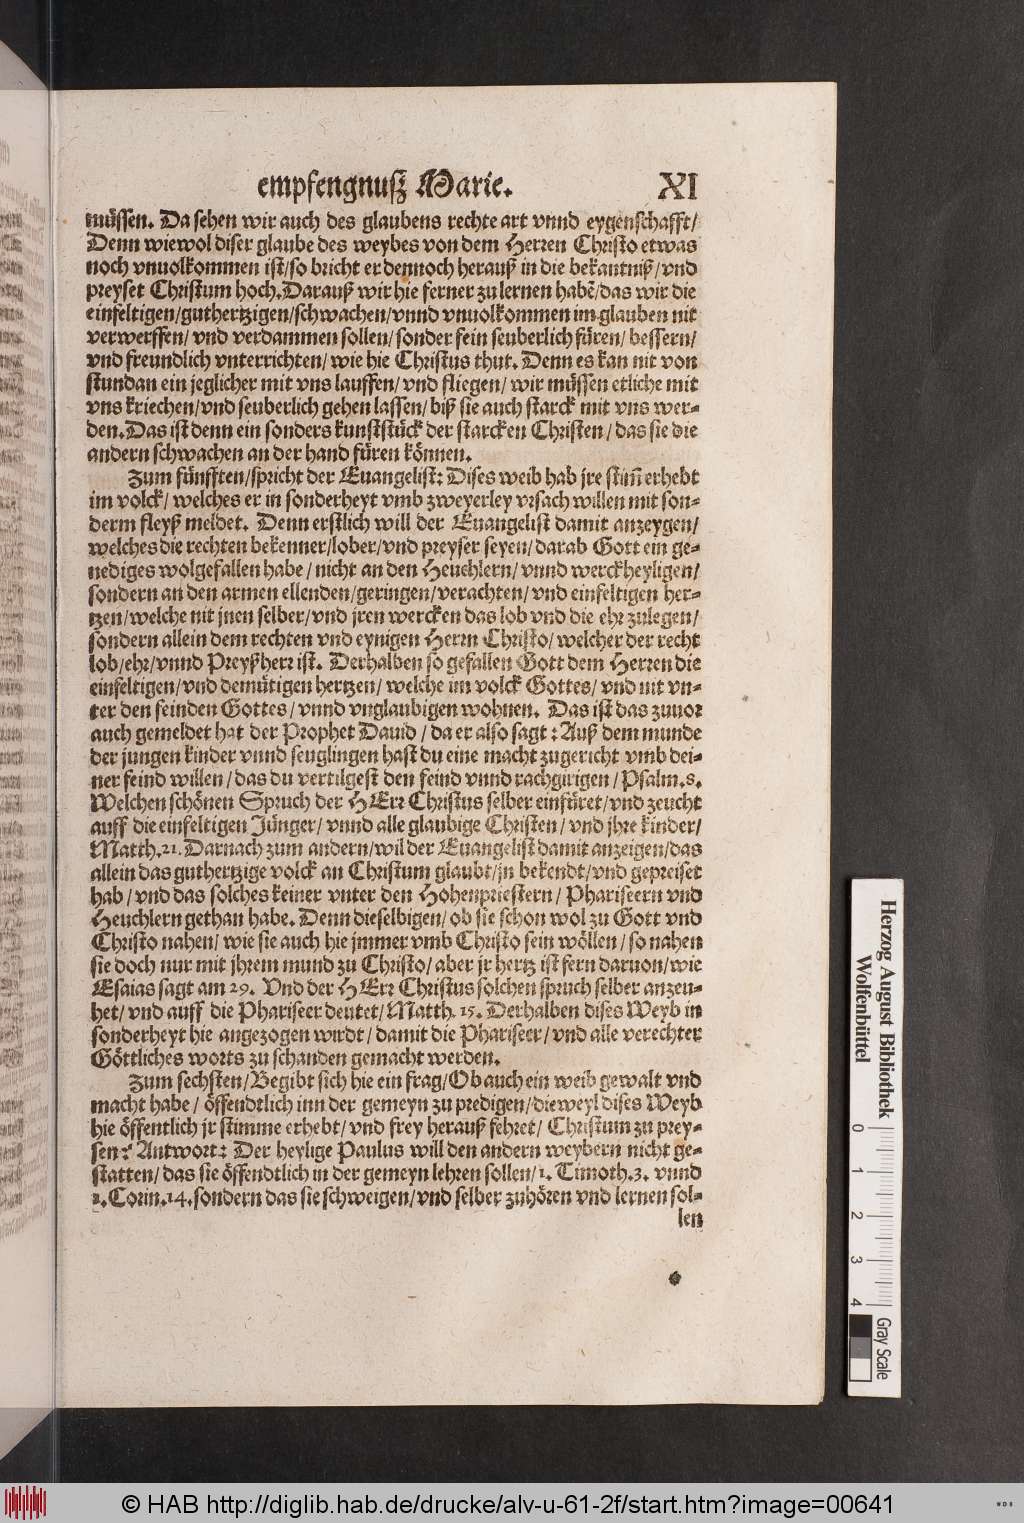 empfengnusz Marie. XI
müssen. Da sehen wir auch des glaubens rechte art vnnd eygenschafft/
Denn wiewol diser glaube des weybes von dem Herren Christo etwas
noch vnuolkommen ist/so bricht er dennoch herauß in die bekantniß/vnd
preyset Christum hoch.Darauß wir hie ferner zu lernen habẽ/das wir die
einfeltigen/guthertzigen/schwachen/vnnd vnuolkommen im glauben nit
verwerffen/ vnd verdammen sollen/ sonder fein seuberlich füren/ bessern/
vnd freundlich vnterrichten/ wie hie Christus thut. Denn es kan nit von
stundan ein jeglicher mit vns lauffen/ vnd fliegen/ wir müssen etliche mit
vns kriechen/vnd seuberlich gehen lassen/ biß sie auch starck mit vns wer-
den.Das ist denn ein sonders kunststück der starcken Christen/ das sie die
andern schwachen an der hand füren können.
Zum fünfften/spricht der Euangelist: Dises weib hab jre stim̃ erhebt
im volck/ welches er in sonderheyt vmb zweyerley vrsach willen mit son-
derm fleyß meldet. Denn erstlich will der Euangelist damit anzeygen/
welches die rechten bekenner/lober/vnd preyser seyen/ darab Gott ein ge-
nediges wolgefallen habe/ nicht an den Heuchlern/ vnnd werckheyligen/
sondern an den armen ellenden/geringen/verachten/ vnd einfeltigen her-
tzen/welche nit jnen selber/vnd jren wercken das lob vnd die ehr zulegen/
sondern allein dem rechten vnd eynigen Herrn Christo/ welcher der recht
lob/ehr/vnnd Preyßherr ist. Derhalben so gefallen Gott dem Herren die
einfeltigen/vnd demütigen hertzen/ welche im volck Gottes/ vnd nit vn-
ter den feinden Gottes/ vnnd vnglaubigen wohnen. Das ist das zuuor
auch gemeldet hat der Prophet Dauid/ da er also sagt: Auß dem munde
der jungen kinder vnnd seuglingen hast du eine macht zugericht vmb dei-
ner feind willen/das du vertilgest den feind vnnd rachgirigen/Psalm.8.
Welchen schönen Spruch der HErr Christus selber einfüret/vnd zeucht
auff die einfeltigen Jünger/ vnnd alle glaubige Christen/ vnd jhre kinder/
Matth.21.Darnach zum andern/wil der Euangelist damit anzeigen/das
allein das guthertzige volck an Christum glaubt/jn bekendt/vnd gepreiset
hab/vnd das solches keiner vnter den Hohenpriestern/ Phariseern vnd
Heuchlern gethan habe. Denn dieselbigen/ ob sie schon wol zu Gott vnd
Christo nahen/ wie sie auch hie jmmer vmb Christo sein wöllen/ so nahen
sie doch nur mit jhrem mund zu Christo/ aber jr hertz ist fern daruon/wie
Esaias sagt am 29. Vnd der HErr Christus solchen spruch selber anzeu-
het/ vnd auff die Phariseer deutet/Matth. 15. Derhalben dises Weyb in
sonderheyt hie angezogen wirdt/ damit die Phariseer/vnd alle verechter
Göttliches worts zu schanden gemacht werden.
Zum sechsten/Begibt sich hie ein frag/Ob auch ein weib gewalt vnd
macht habe/ öffendtlich inn der gemeyn zu predigen/dieweyl dises Weyb
hie öffentlich jr stimme erhebt/ vnd frey herauß fehret/ Christum zu prey-
sen? Antwort: Der heylige Paulus will den andern weybern nicht ge-
statten/ das sie öffendtlich in der gemeyn lehren sollen/1. Timoth.3. vnnd
1.Corin.14.sondern das sie schweigen/vnd selber zuhören vnd lernen sol-
len
Herzog August Bibliothek
Wolfenbüttel
0 1 2 3 4
Gray Scale
© HAB http://diglib.hab.de/drucke/alv-u-61-2f/start.htm?image=00641